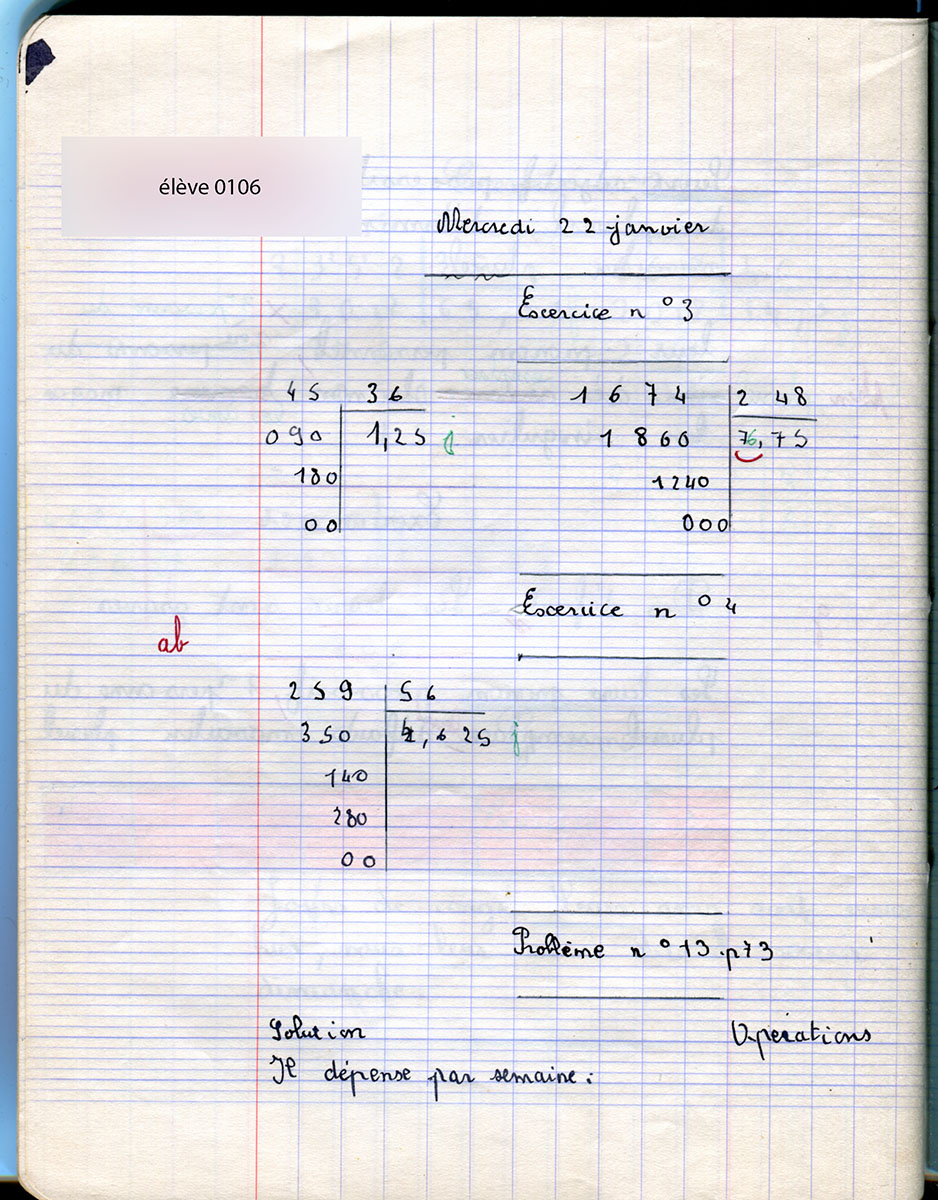 élève 0106
Mercredi 22 janvier
Excercice n° 3
45 36 1674 248
090 1,25 j 1860 76,75
180 1240
00 000
Excercice n° 4
ab
259 56
350 4,625 j
140
280
00
Problème n° 13.p73
Solution Opérations
Il dépense par semaine :